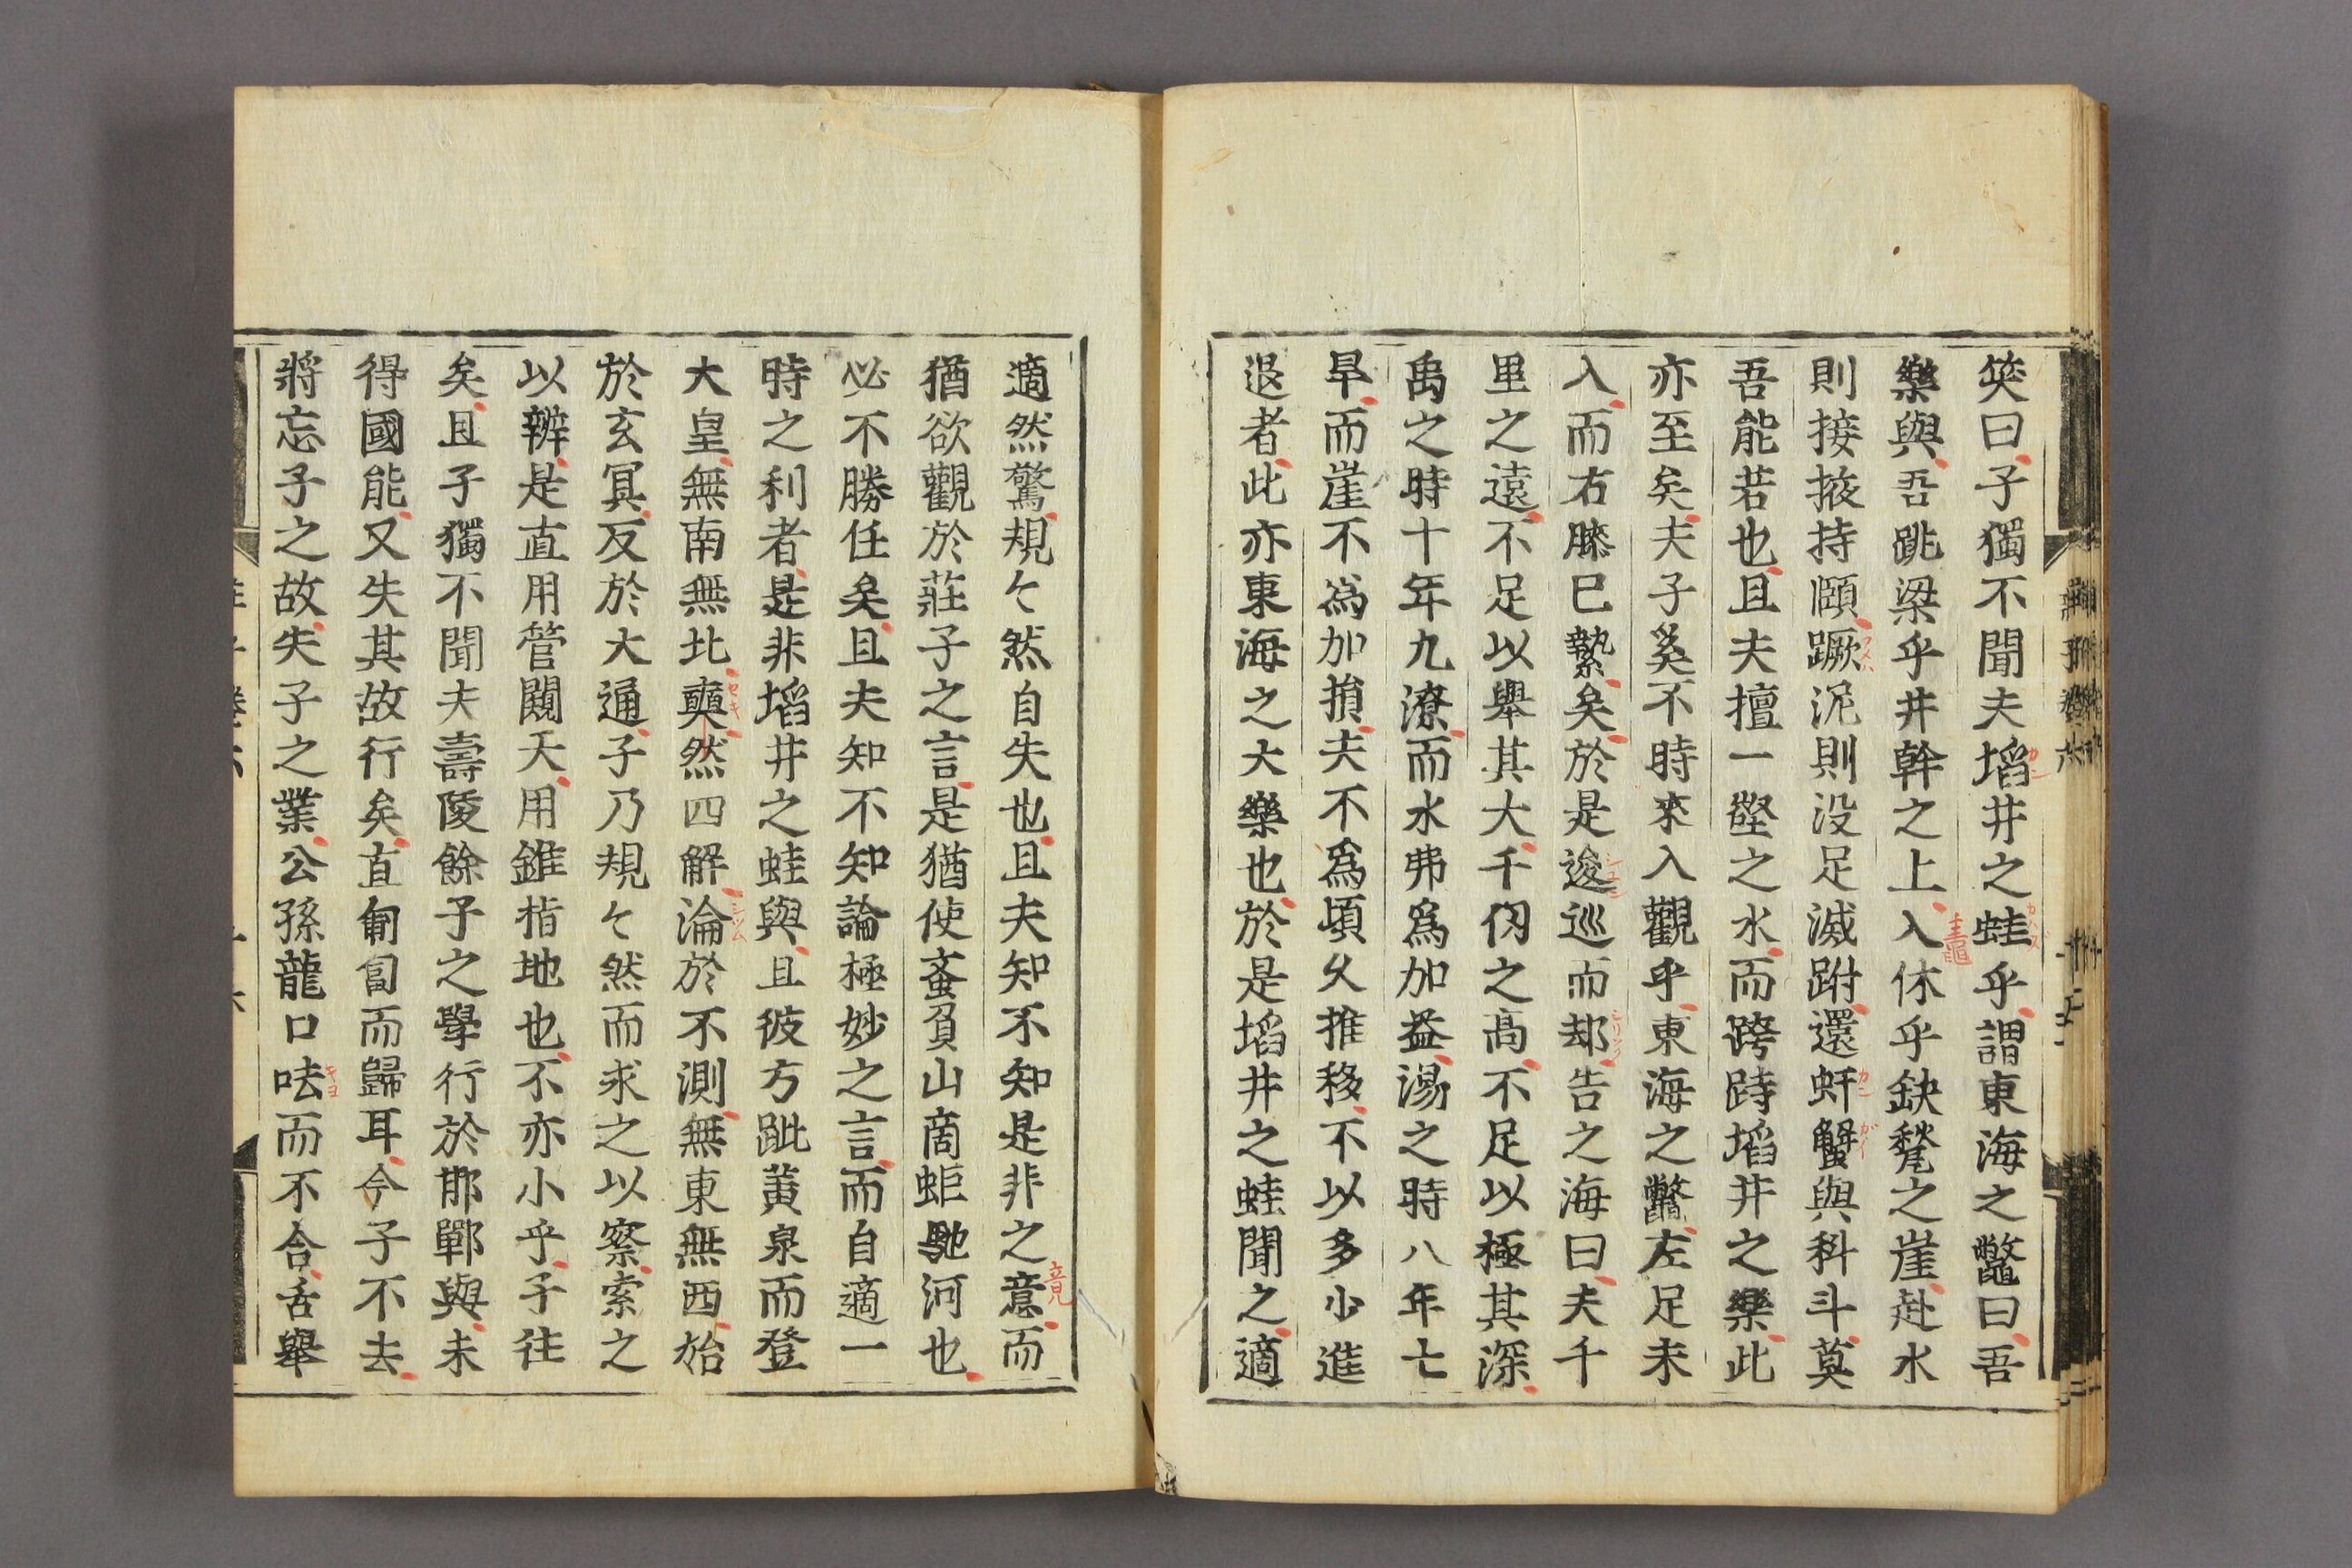 笑曰子獨不聞夫埳井之蛙乎謂東海之鼈曰吾
樂與吾跳梁乎井幹之上入休乎缺甃之崖赴水
則接掖持頤蹶泥則没足滅跗還虷蟹與科斗莫
吾能若也且夫擅一壑之水而跨跱埳井之樂此
亦至矣夫子奚不時來入觀乎東海之鼈左足未
入而右膝已縶矣於是逡巡而却告之海曰夫千
里之遠不足以舉其大千仭之高不足以極其深
禹之時十年九潦而水弗爲加益湯之時八年七
旱而崖不爲加損夫不爲頃久推移不以多少進
退者此亦東海之大樂也於是埳井之蛙聞之適
適然驚規々然自失也且夫知不知是非之意而
猶欲觀於莊子之言是猶使蚉負山商蚷馳河也
必不勝任矣且夫知不知論極妙之言而自適一
時之利者是非埳井之蛙與且彼方跐黃泉而登
大皇無南無北奭然四解淪於不測無東無西始
於玄冥反於大通子乃規々然而求之以察索之
以辯是直用管闚天用錐指地也不亦小乎子往
矣且子獨不聞夫壽陵餘子之學行於邯鄲與未
得國能又失其故行矣直匍匐而歸耳今子不去
將忘子之故失子之業公孫龍口呿而不合舌舉